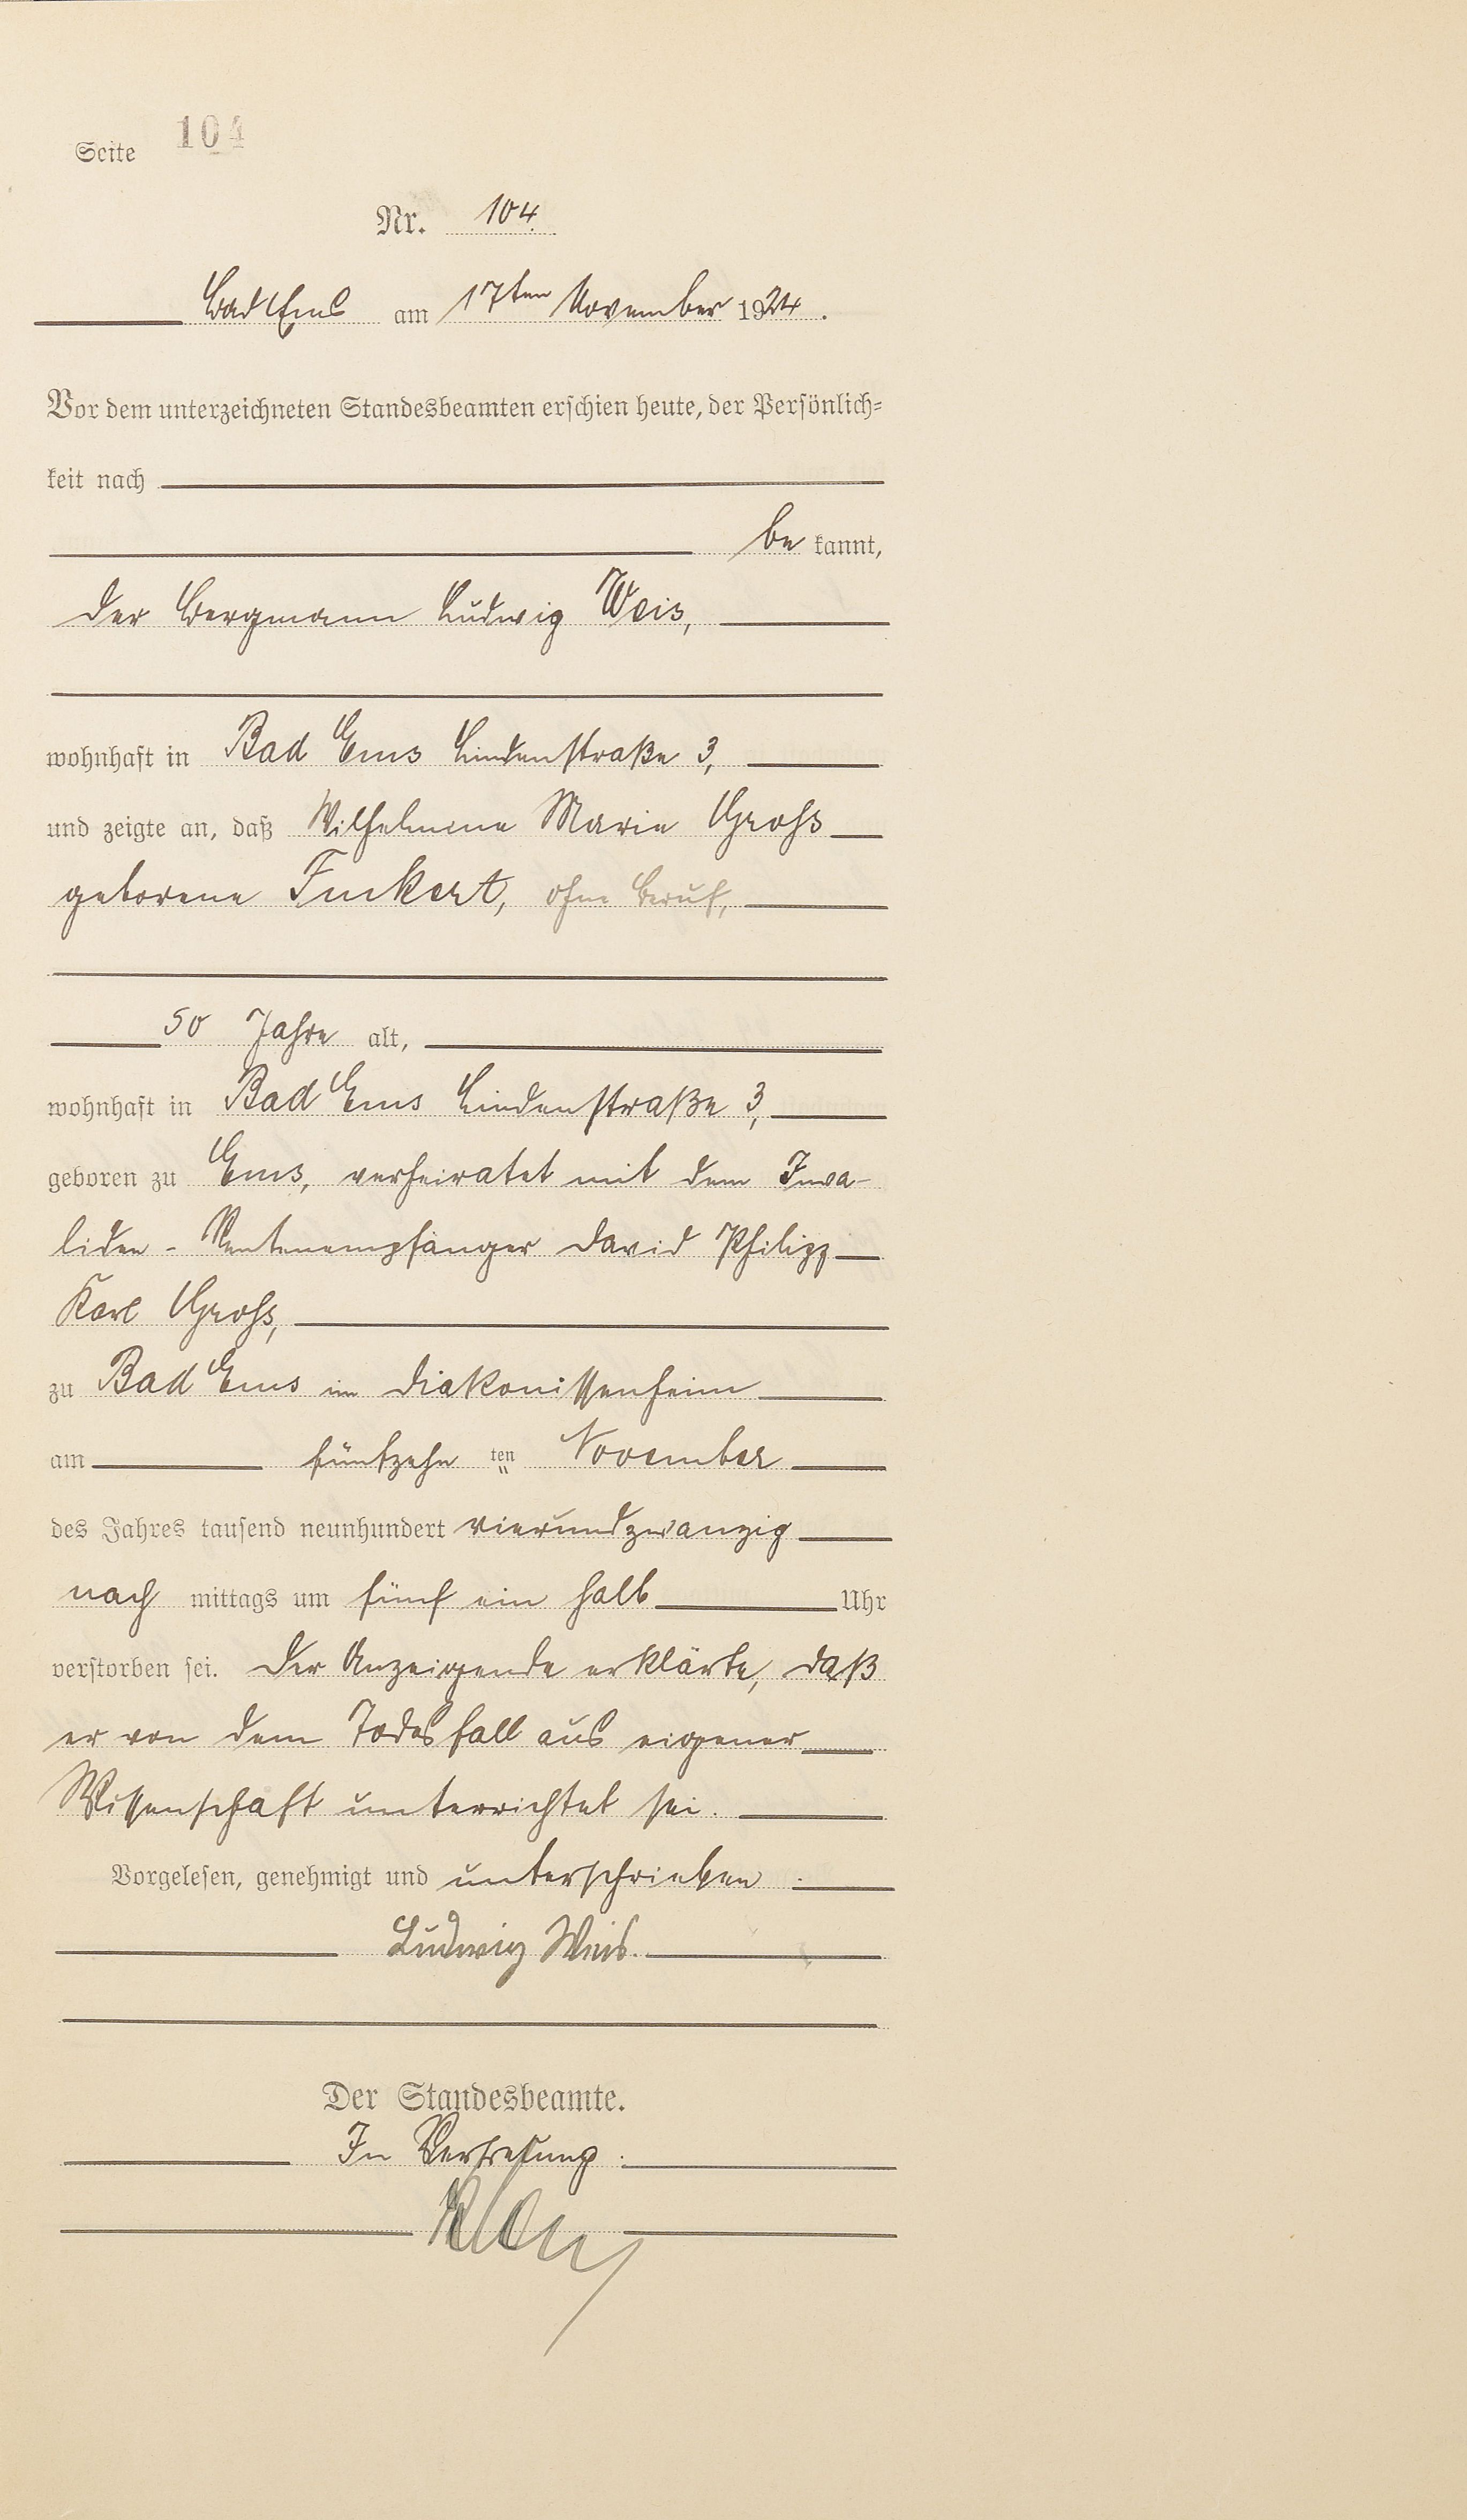 Seite 104
Nr. 104.
Bad Ems am 17ten November 1924.
Vor dem unterzeichneten Standesbeamten erschien heute, der Persönlich=
keit nach
be kannt,
der Bergmann Ludwig Weis,
wohnhaft in Bad Ems Lindenstraße 3,
und zeigte an, daß Wilhelmine Marie Groß
geborene Finkert, ohne Beruf,
50 Jahre alt,
wohnhaft in Bad Ems Lindenstraße 3,
geboren zu Ems, verheiratet mit dem Inva-
liden - Rentenempfänger David Philipp
Karl Groß,
zu Bad Ems im Diakonissenheim
am fünfzehn ten November
des Jahres tausend neunhundert vierundzwanzig
nach mittags um fünf ein halb Uhr
verstorben sei. Der Anzeigende erklärte, daß
er von dem Todesfall aus eigener
Wissenschaft unterrichtet sei.
Vorgelesen, genehmigt und unterschrieben.
Ludwig Weis.
Der Standesbeamte.
In Vertretung.